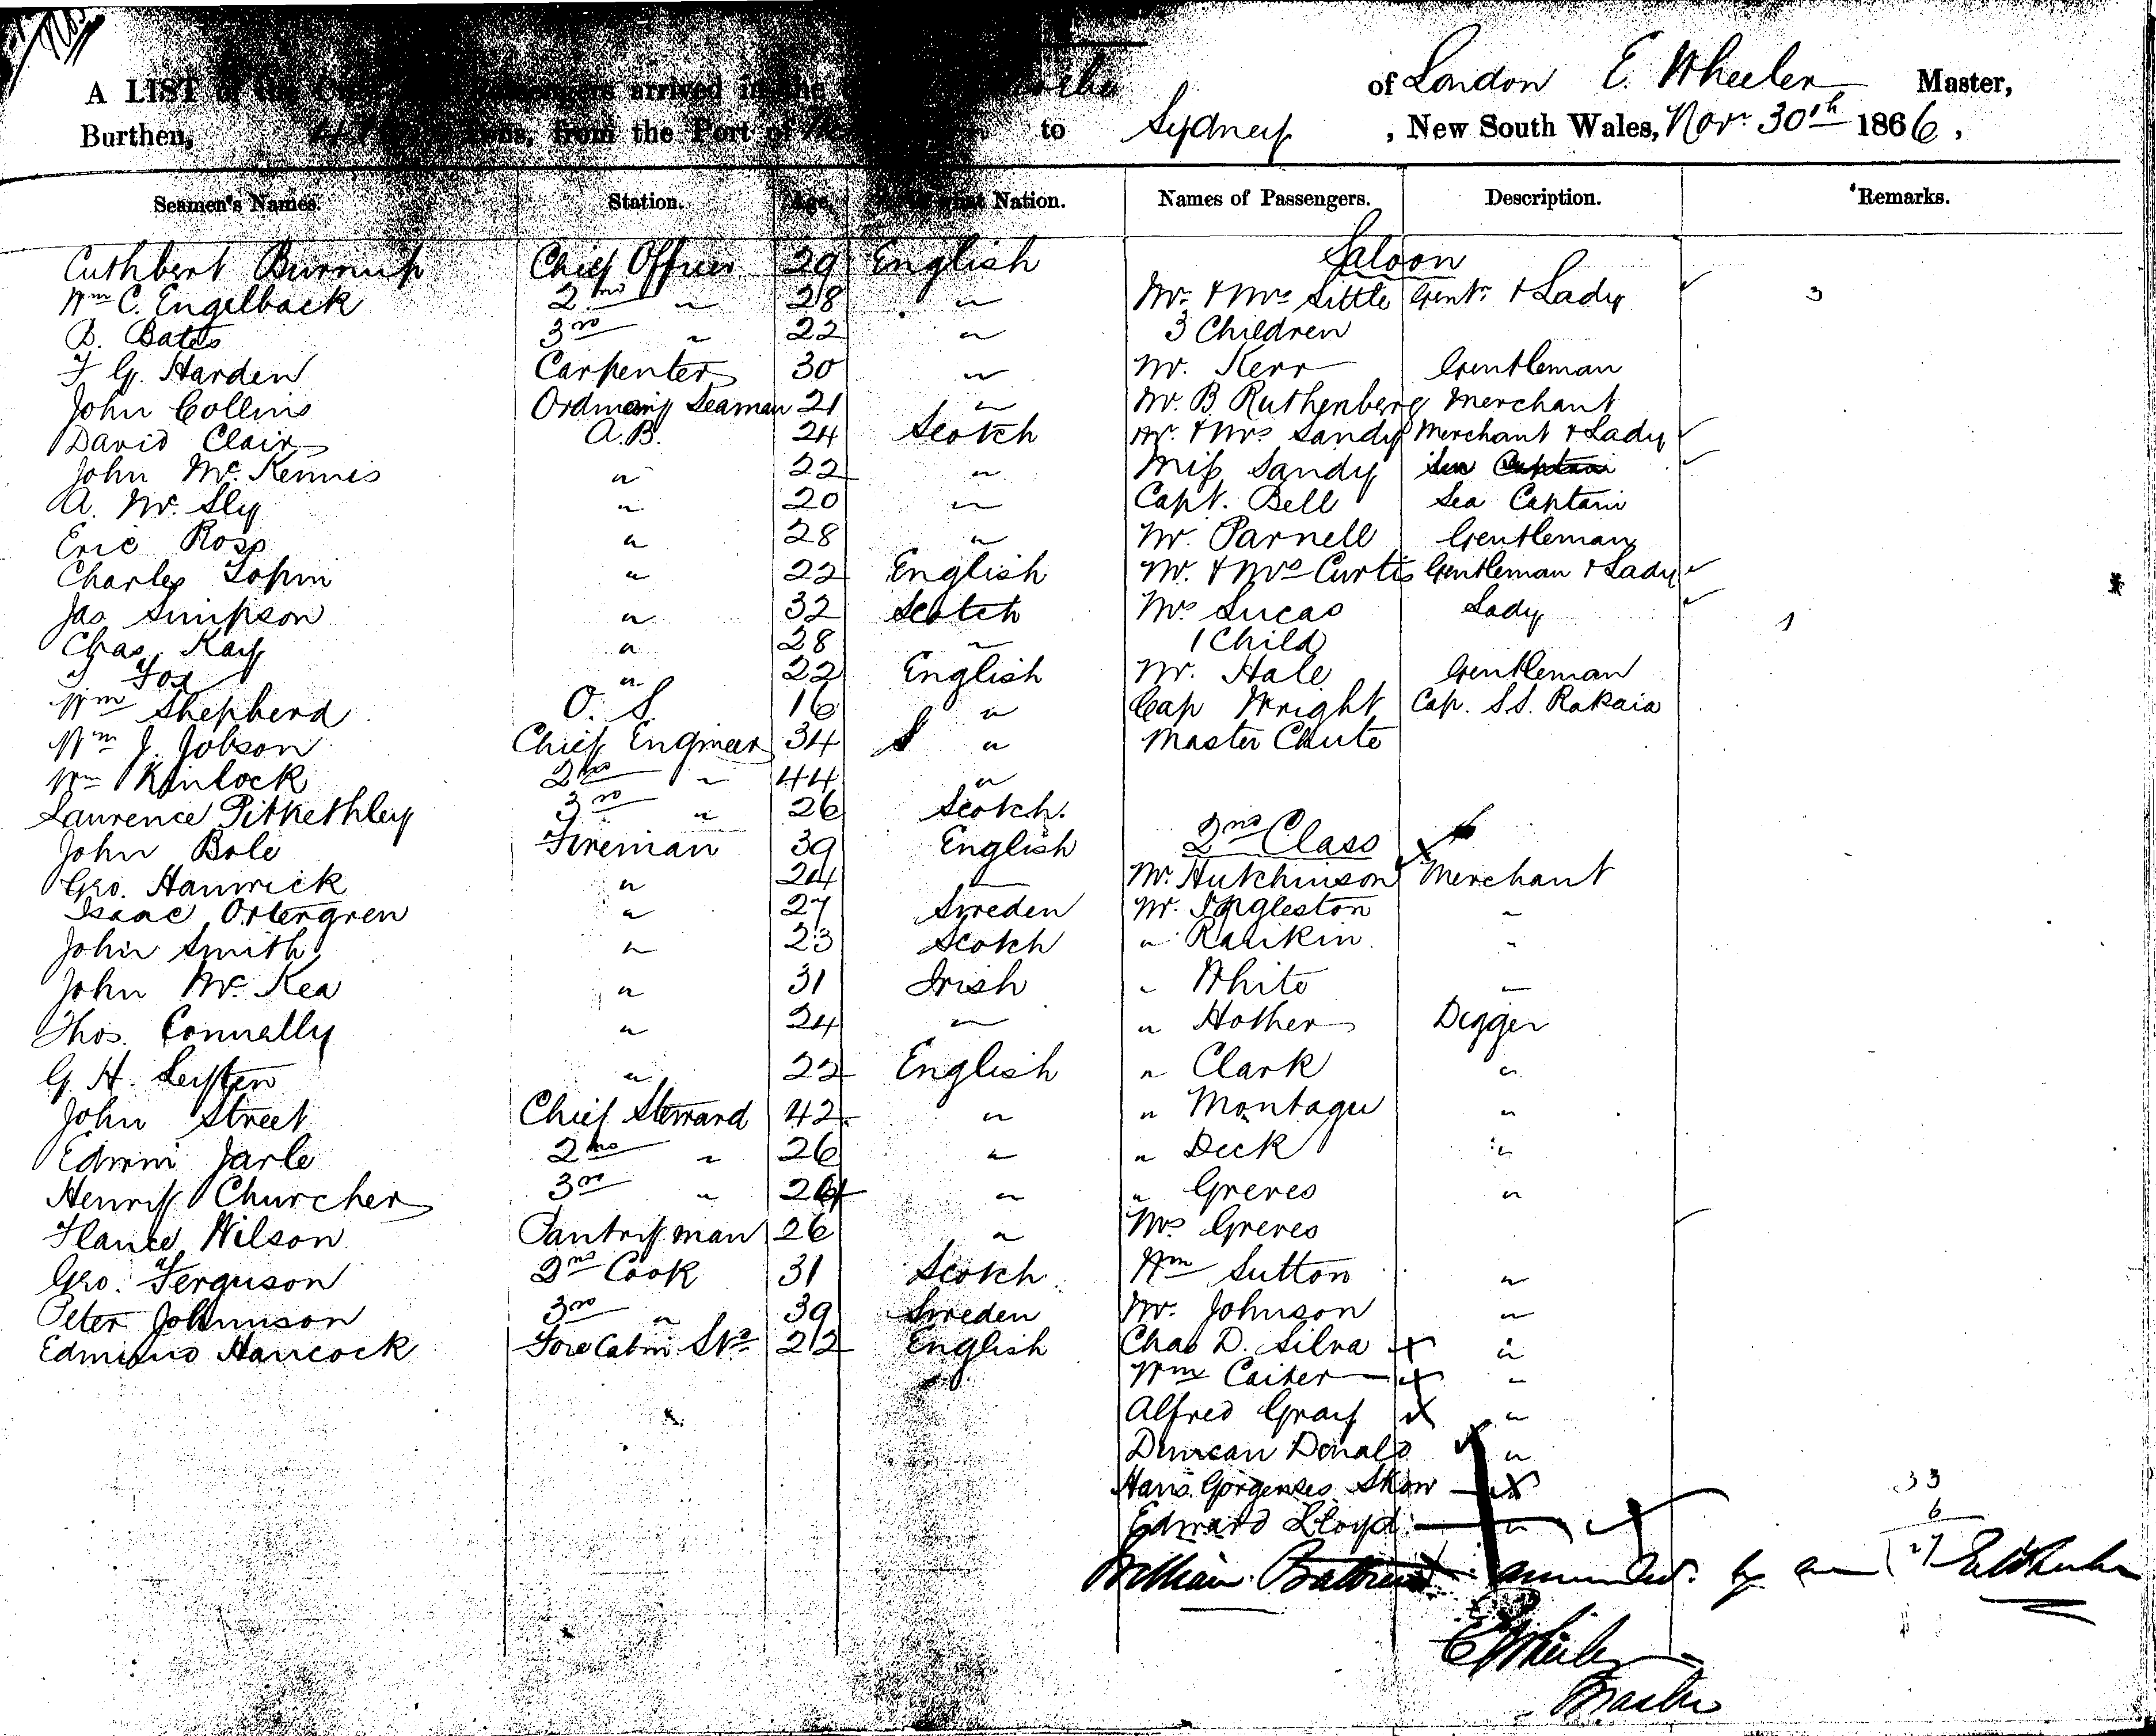 A LIST of the Crew and Passengers arrived in the of London E. Wheeler Master,
Burthen, Tons, from the Port of to Sydney, New South Wales, Novr 30th 1866,
Seamen's Names. Station. Age. Of what Nation. Names of Passengers. Description. Remarks.
Saloon
Cuthbert Burnup Chief Officer 29 English
Wm C. Engelback 2nd " 28 " Mr. & Mrs Little Gentn. & Lady 3
B. Bates 3rd " 22 " 3 Children
F G. Harden Carpenter 30 " Mr. Kerr Gentleman
John Collins Ordinary Seaman 21 " Mr. B. Ruthenberg Merchant
David Clair A.B. 24 Scotch Mr. & Mrs Sandy Merchant & Lady
John Mc. Kennis " 22 " Miss Sandy Sea Captain
A. Mc. Sly " 20 " Capt. Bell Sea Captain
Eric Ross " 28 " Mr. Parnell Gentleman
Charles " 22 English Mr. & Mrs Curtis Gentleman & Lady
Jas Simpson " 32 Scotch Mrs Lucas Lady 1
Chas. Kay " 28 " 1 Child
Fox " 22 English Mr. Hale Gentleman
Wm Shepherd O. S. 16 " Cap Wright Cap. S.S. Rakaia
Wm J. Jobson Chief Engineer 34 " Master Chute
Wm Kinlock 2nd " 44 "
Laurence Pitkethley 3rd " 26 Scotch.
2nd Class
John Bole Fireman 39 English
Geo. Hanwick " 24 " Mr. Hutchinson Merchant
Isaac Ostergren " 27 Sweden Mr. Ingleston "
John Smith " 23 Scotch " Rankin "
John Mc. Kea " 31 Irish " White "
Thos. Connally " 24 " " Hother Digger
G. H. " 22 English " Clark "
John Street Chief Steward 42 " " Montague "
Edwin Jarle 2nd " 26 " " Deck "
Henry Churcher 3rd " 24 " " Greves "
Wilson Pantry man 26 " Mrs Greves
Geo. Ferguson 2nd Cook 31 Scotch Wm Sutton "
Peter Johnson 3rd " 39 Sweden Mr. Johnson "
Edmund Hancock Fore Cabin Std 22 English Chas D. Silva "
Wm Caiter "
Alfred Gray "
Duncan Donald "
Hans Gorgenses Skow " 33
Edward Lloyd " 6
William by 27 E Wheeler
E Wheeler
Master